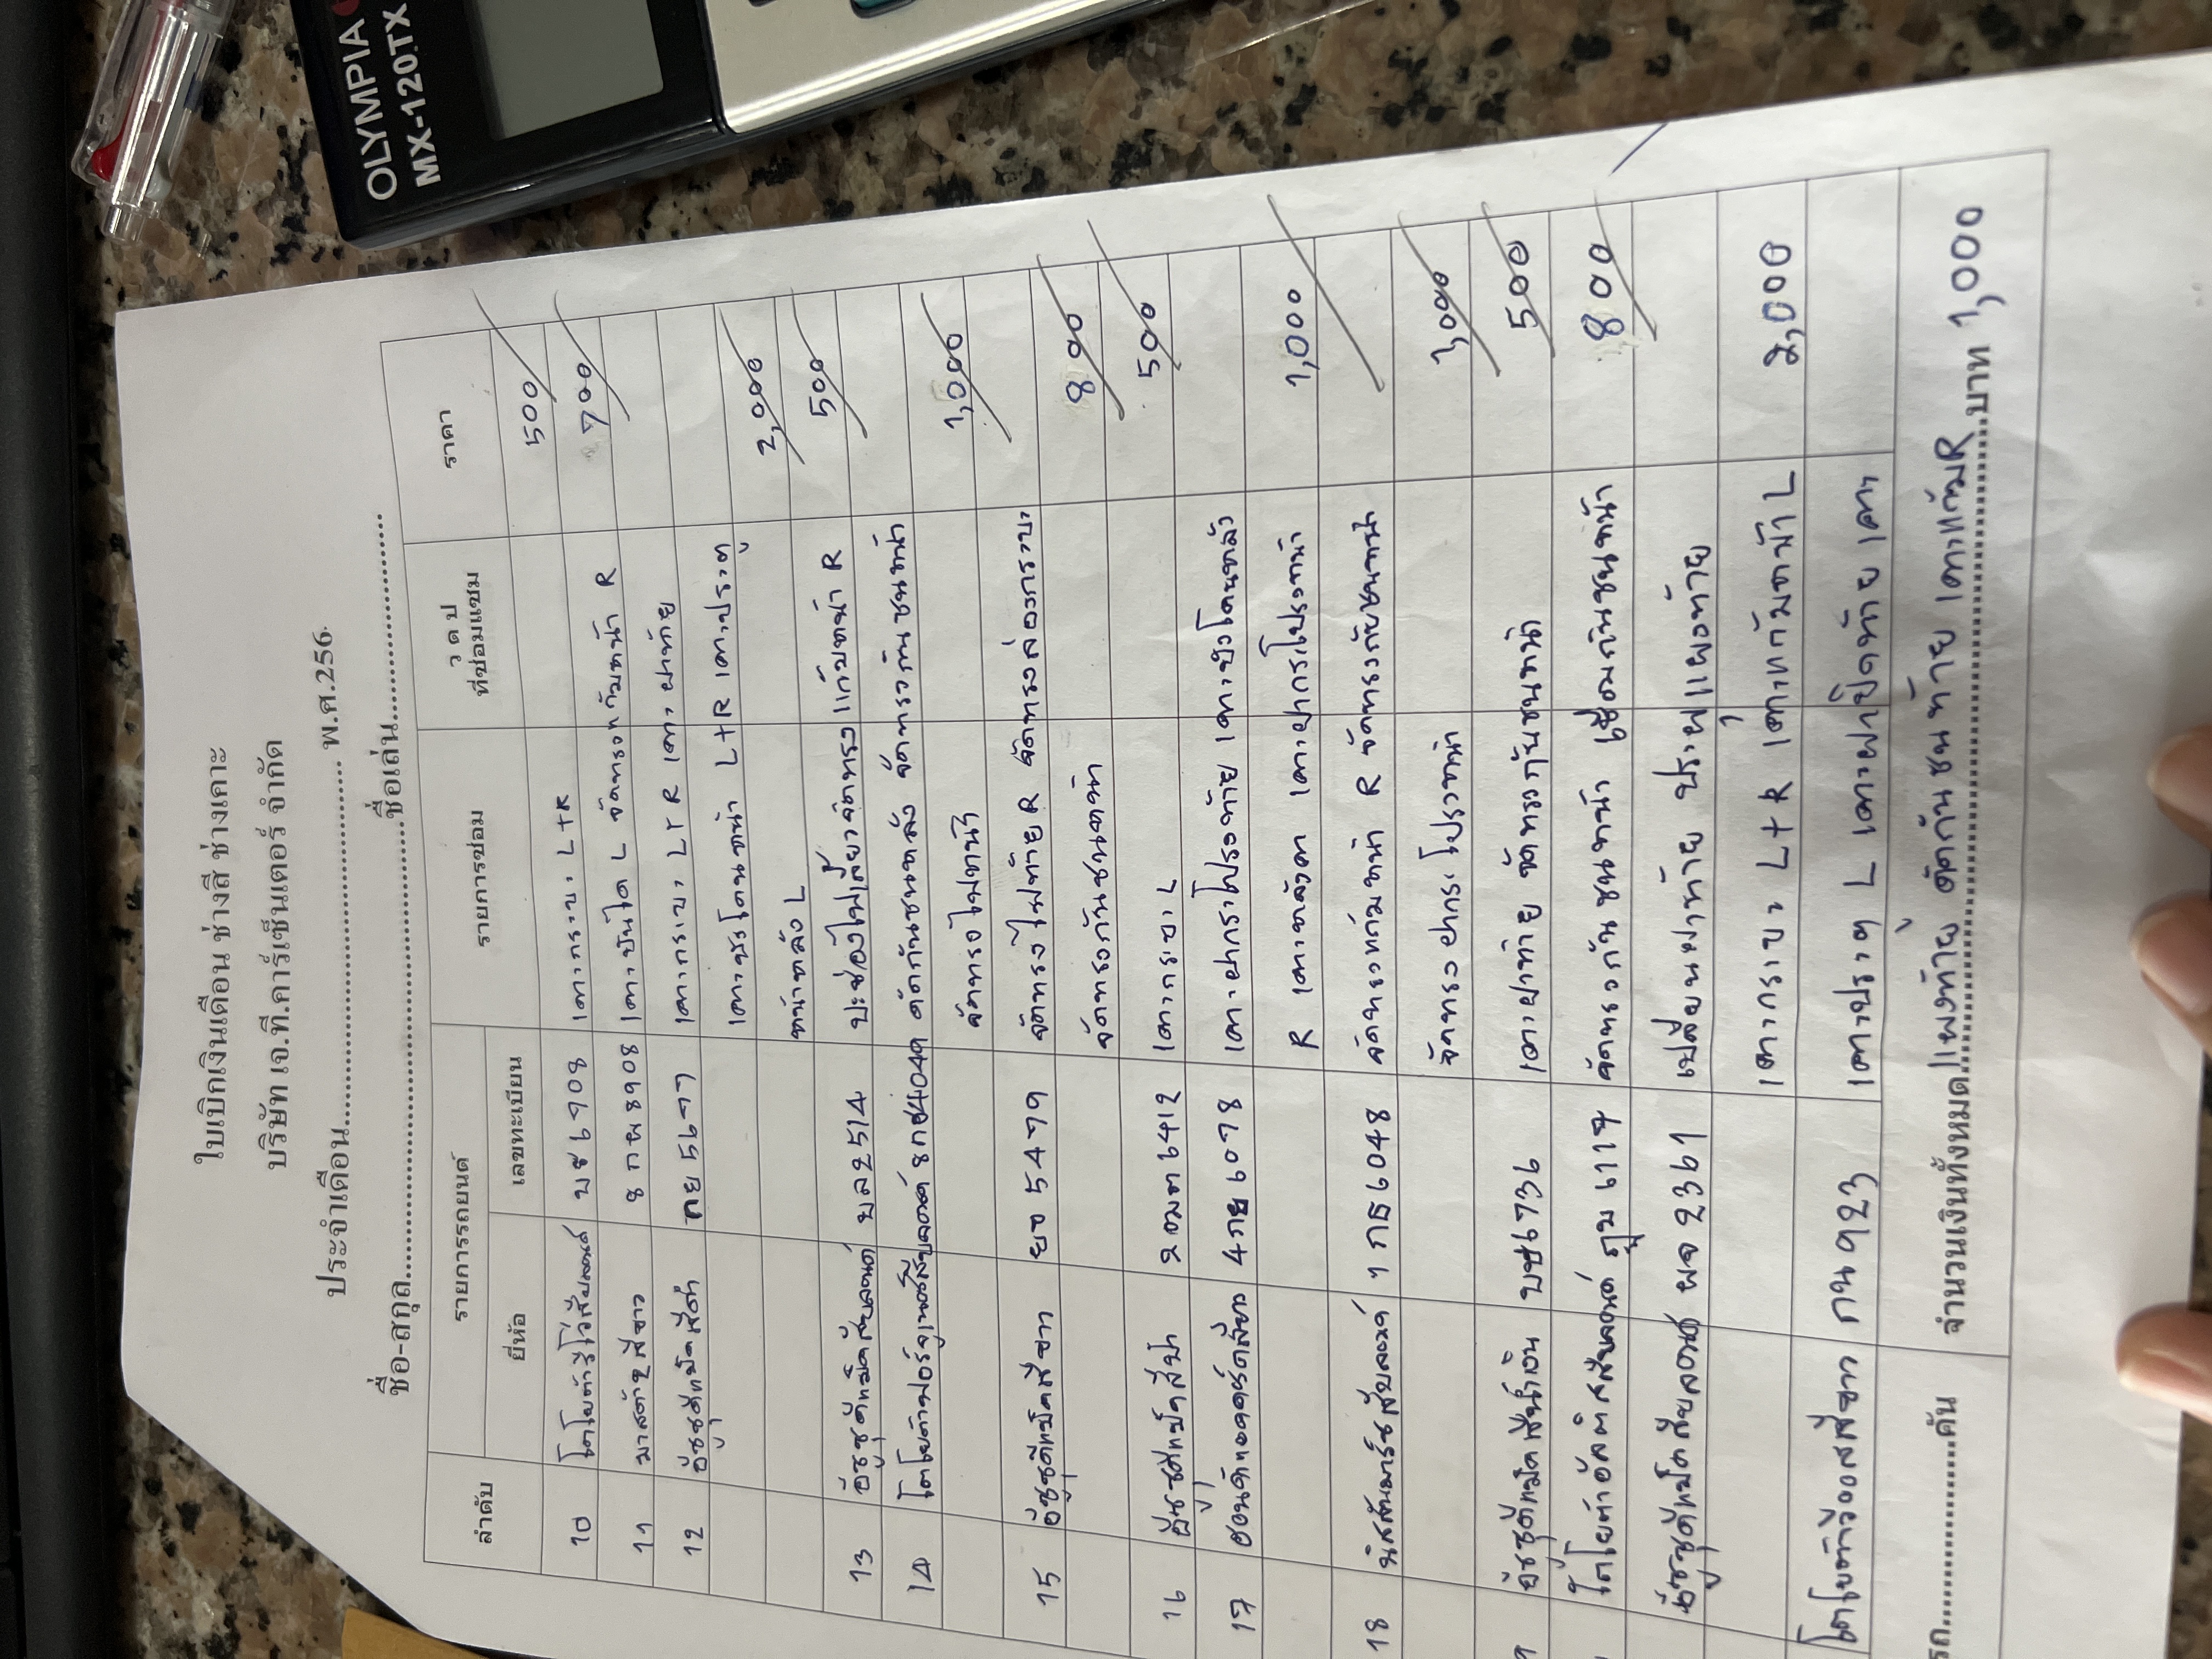 OLYMPIA
MX-120TX
ใบเบิกเงินเดือน ช่างสี ช่างเคาะ
บริษัท เจ.ที.คาร์เซ็นเตอร์ จำกัด
ประจำเดือน.................................. พ.ศ.256
ชื่อ-สกุล..................................ชื่อเล่น..................
ลำดับ รายการรถยนต์ รายการซ่อม ว ด ป ที่ซ่อมแซม ราคา
ยี่ห้อ เลขทะเบียน
10 บช 6908 เคาะกระบะ L+R 500
11 มาสด้า2สีขาว 8 กผ 8908 เคาะบันได L จัดทรงแก้มหน้า R 700
12 อีซูซุดีแม็คสีดำ 5677 เคาะกระบะ L+R เคาะฝาท้าย
เคาะซุ้มโคนหน้า L+R เคาะประตู
หน้าหลัง L 2,000
13 อีซูซุดีแม็คสีบลอนด์ บล 2514 จัดทรงแก้มหน้า R 500
14 ตัดกันชนหลัง จัดทรงกันชนหน้า
จัดทรงไฟหน้า 1,000
15 อีซูซุดีแม็คสีขาว ยจ 5479 จัดทรงไฟท้าย R จัดทรงล่องกระบะ
จัดทรงกันชนหน้า 800
16 6412 เคาะกระบะ L 500
17 6078 เคาะฝากระโปรงท้าย เคาะบังโคลนหลัง
R เคาะหลังคา เคาะฝากระโปรงหน้า 1,000
18 นิสสันมาร์ชสีบลอนด์ 1 กธ 6048 จัดทรงแก้มหน้า R จัดทรงกันชนหน้า
จัดทรงฝากระโปรงหน้า 1,000
อีซูซุดีแม็คสีน้ำเงิน บช 6736 เคาะฝาท้าย จัดทรงกันชนหน้า 500
6117 จัดทรงกันชนหน้า เชื่อมกันชนหน้า 800
อีซูซุดีแม็คสีบลอนด์ ผจ 2361 เปลี่ยนฝาท้าย แผงท้าย
เคาะกระบะ L+R เคาะแก้มหน้า L 2,000
โตโยต้าวีออสสีขาว กน 923 เคาะประตู L เคาะฝาปิดท้าย เคาะ
รถ...............คัน จำนวนเงินทั้งหมด แผงท้าย ดัดกันชนท้าย เคาะแก้มR บาท 1,000